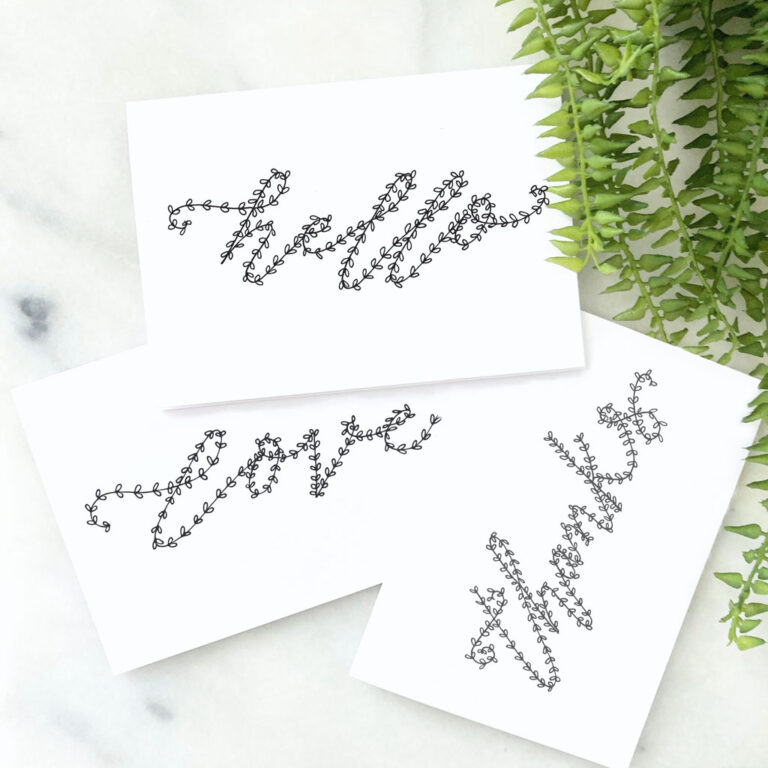 hello
love
thanks